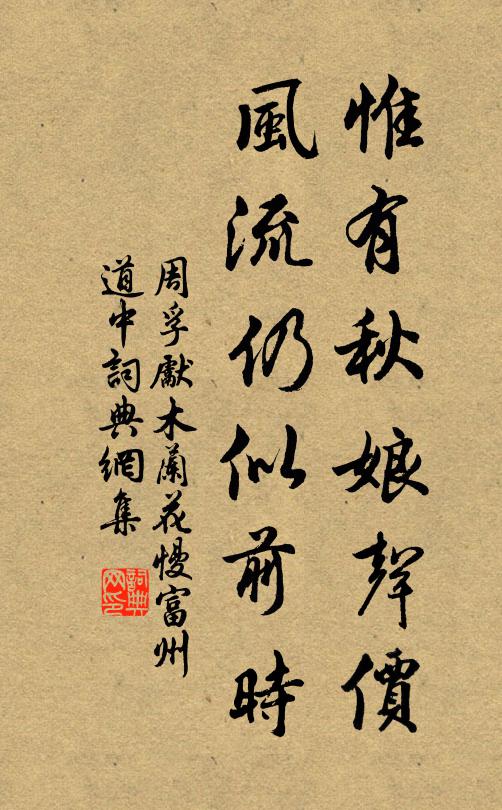 惟有秋娘聲價
風流仍似前時
周孚獻木蘭花慢富州
道中詞典網集
詞典网印